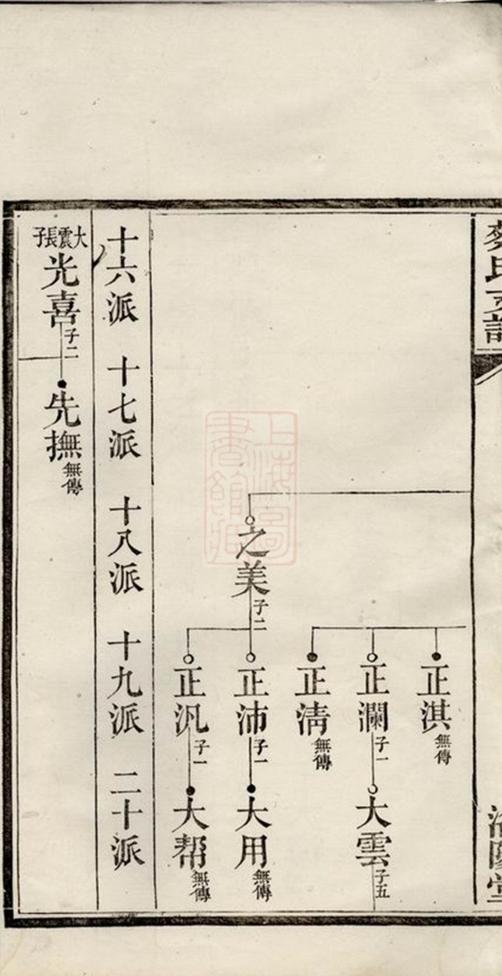 蔡氏支譜
濟陽堂
正淇 無傳
正瀾 子一
大雲 子五
正清 無傳
之美 子二
正沛 子一
大用 無傳
正汎 子一
大帮 無傳
十六派 十七派 十八派 十九派 二十派
大震長子
光喜 子二
先撫 無傳
上海圖書館藏